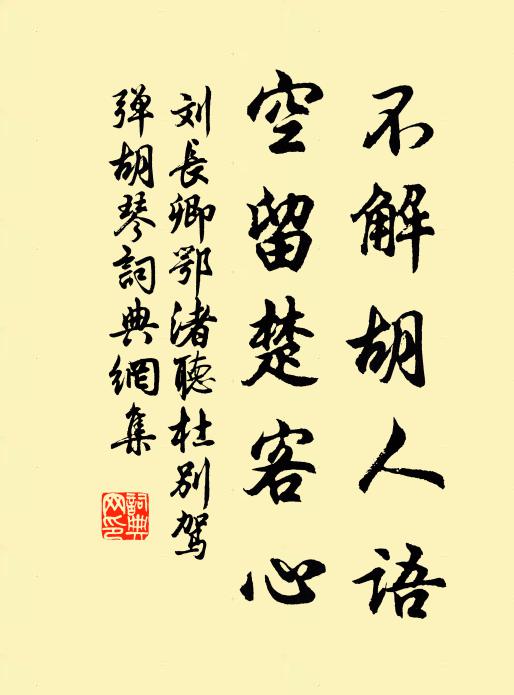 不解胡人语
空留楚客心
刘长卿鄂渚聽杜别驾
弹胡琴詞典網集
詞典网印